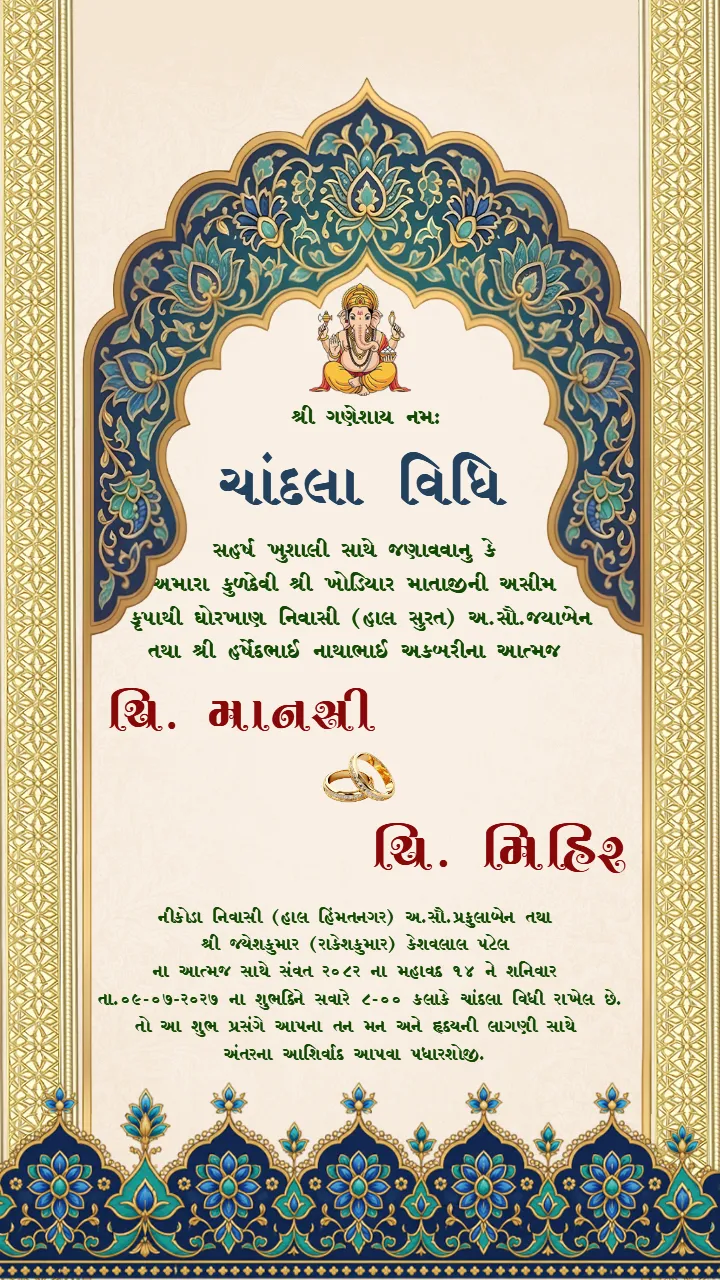 શ્રી ગણેશાય નમઃ
ચાંદલા વિધિ
સહર્ષ ખુશાલી સાથે જણાવવાનુ કે
અમારા કુળદેવી શ્રી ખોડિયાર માતાજીની અસીમ
કૃપાથી ઘોરખાણ નિવાસી (હાલ સુરત) અ.સૌ.જયાબેન
તથા શ્રી હર્ષેદભાઈ નાયાભાઈ અકબરીના આત્મજ
ચિ. માનસી
ચિ. મિહિર
નીકોડા નિવાસી (હાલ હિંમતનગર) અ.સૌ.પ્રફુલાબેન તથા
શ્રી જયેશકુમાર (રાકેશકુમાર) કેશવલાલ પટેલ
ના આત્મજ સાથે સંવત ૨૦૮૨ ના મહાવદ ૧૪ ને શનિવાર
તા.૦૯-૦૭-૨૦૨૭ ના શુભદિને સવારે ૮-૦૦ કલાકે ચાંદલા વિધી રાખેલ છે.
તો આ શુભ પ્રસંગે આપના તન મન અને હૃદયની લાગણી સાથે
અંતરના આશિર્વાદ આપવા પધારશોજી.